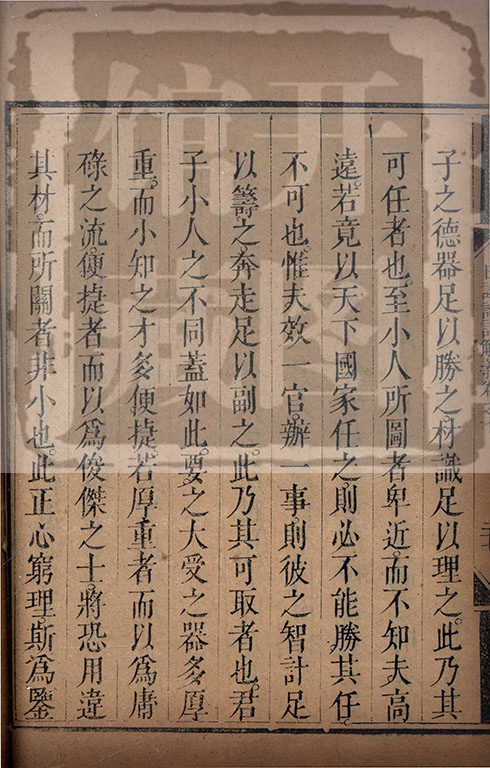 子之德器足以勝之材識足以理之此乃其
可任者也至小人所圖者卑近而不知夫高
遠若竟以天下國家任之則必不能勝其任
不可也惟夫效一官辦一事則彼之智計足
以籌之奔走足以副之此乃其可取者也君
子小人之不同蓋如此要之大受之器多厚
重而小知之才多便捷若厚重者而以為庸
碌之流便捷者而以為俊傑之士將恐用違
其材而所關者非小也此正心窮理斯為鑒